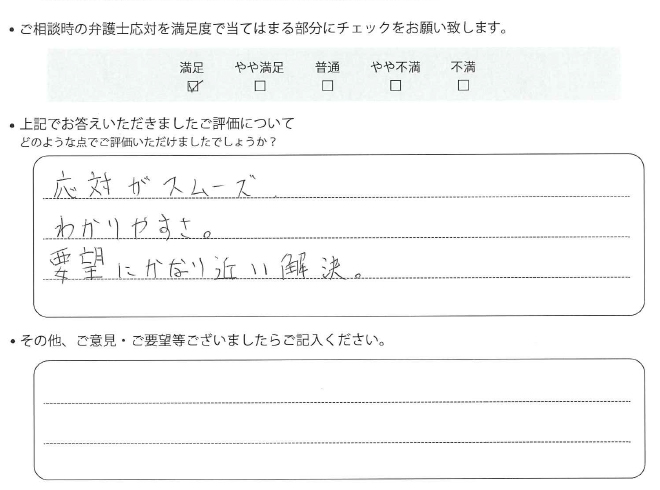 • ご相談時の弁護士応対を満足度で当てはまる部分にチェックをお願い致します。
満足 やや満足 普通 やや不満 不満
☑ □ □ □ □
• 上記でお答えいただきましたご評価について
どのような点でご評価いただけましたでしょうか？
応対がスムーズ.
わかりやすさ。
要望にかなり近い解決。
• その他、ご意見・ご要望等ございましたらご記入ください。